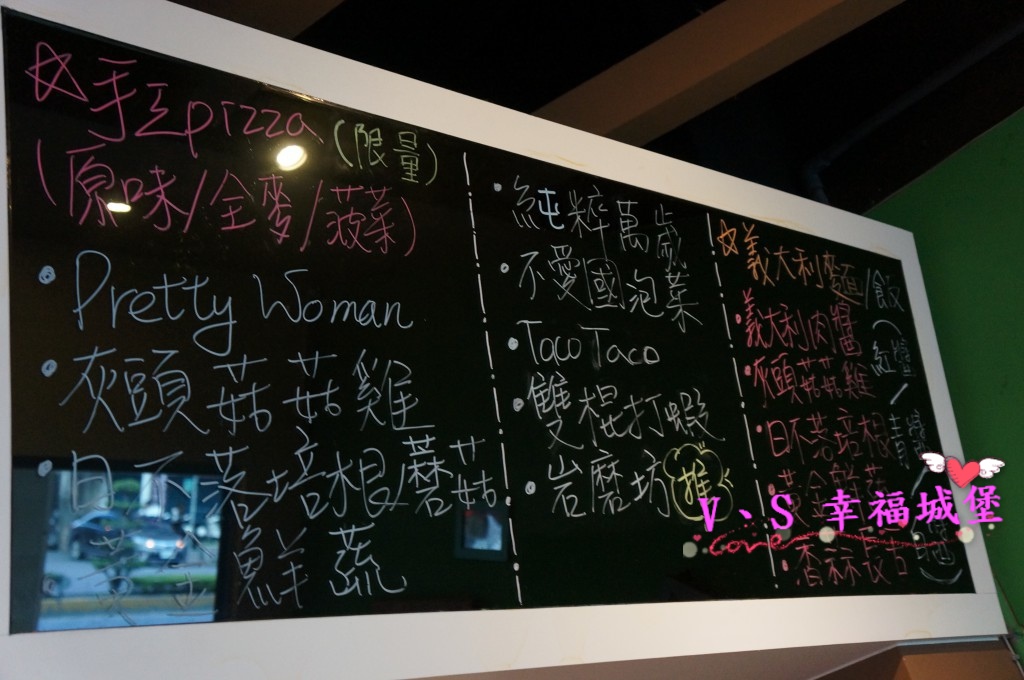 ☆手工pizza(限量)
(原味/全麥/菠菜)
• Pretty Woman
• 灰頭菇菇雞
• 日不落培根/蘑菇
• 黃金鮮蔬
• 純粹萬歲
• 不愛國泡菜
• Taco Taco
• 雙棍打蝦
• 岩磨坊 推
☆義大利麵/飯
(紅醬/青醬/
• 義大利肉醬
• 灰頭菇菇雞
• 日不落培根
• 黃金鮮蔬
• 香
V、S 幸福城堡